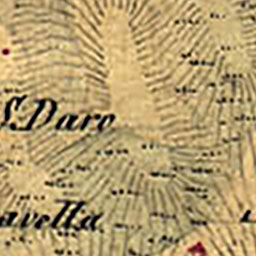 S. Daro
avella